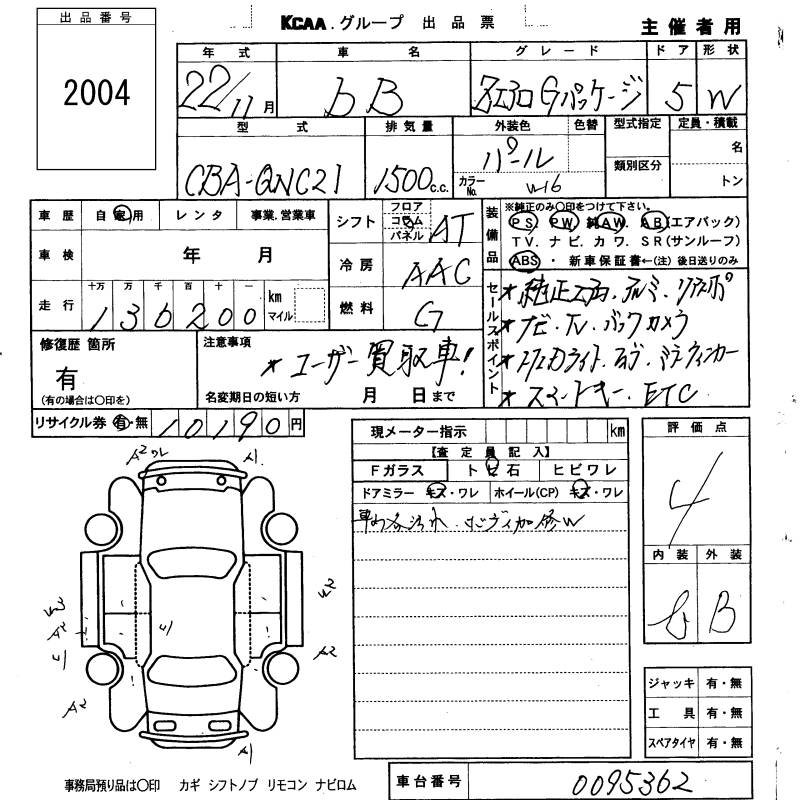 出品番号
2004
KCAA.グループ 出品票
主催者用
年式 車名 グレード ドア 形状
22/11月 bB エアロGパッケージ 5 W
型式 排気量 外装色 色替 型式指定 定員・積載
CBA-QNC21 1500c.c. パール
カラーNo. W16
類別区分
名
トン
車歴 自家用 レンタ 事業.営業車
シフト フロア コラム パネル AT
車検 年 月
冷房 AAC
走行 十万 万 千 百 十 一
136200 km マイル
燃料 G
装備品
※純正のみ○印をつけて下さい。
PS. PW. 純AW. AB(エアバック)
TV. ナビ. カワ. SR(サンルーフ)
ABS・新車保証書←(注)後日送りのみ
セールスポイント
*純正エアロ.アルミ.リアスポ
*ナビ.TV.バックカメラ
*ミラーウィンカー
*スマートキー.ETC
修復歴 箇所
有
(有の場合は○印を)
注意事項
*ユーザー買取車!
名変期日の短い方 月 日まで
リサイクル券 有・無 10190円
現メーター指示 km
【査定員記入】
Fガラス トビ石 ヒビワレ
ドアミラー キズ・ワレ ホイール(CP) キズ・ワレ
評価点
4
内装 外装
B
A2 ワレ A1
W3 W2
A2 A2
A2 A1
ジャッキ 有・無
工具 有・無
スペアタイヤ 有・無
事務局預り品は○印 カギ シフトノブ リモコン ナビロム
車台番号 0095362